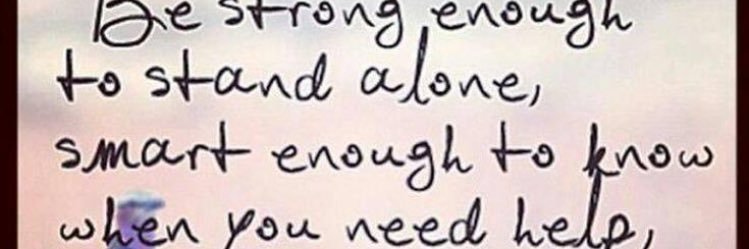 Be strong enough
to stand alone,
smart enough to know
when you need help,